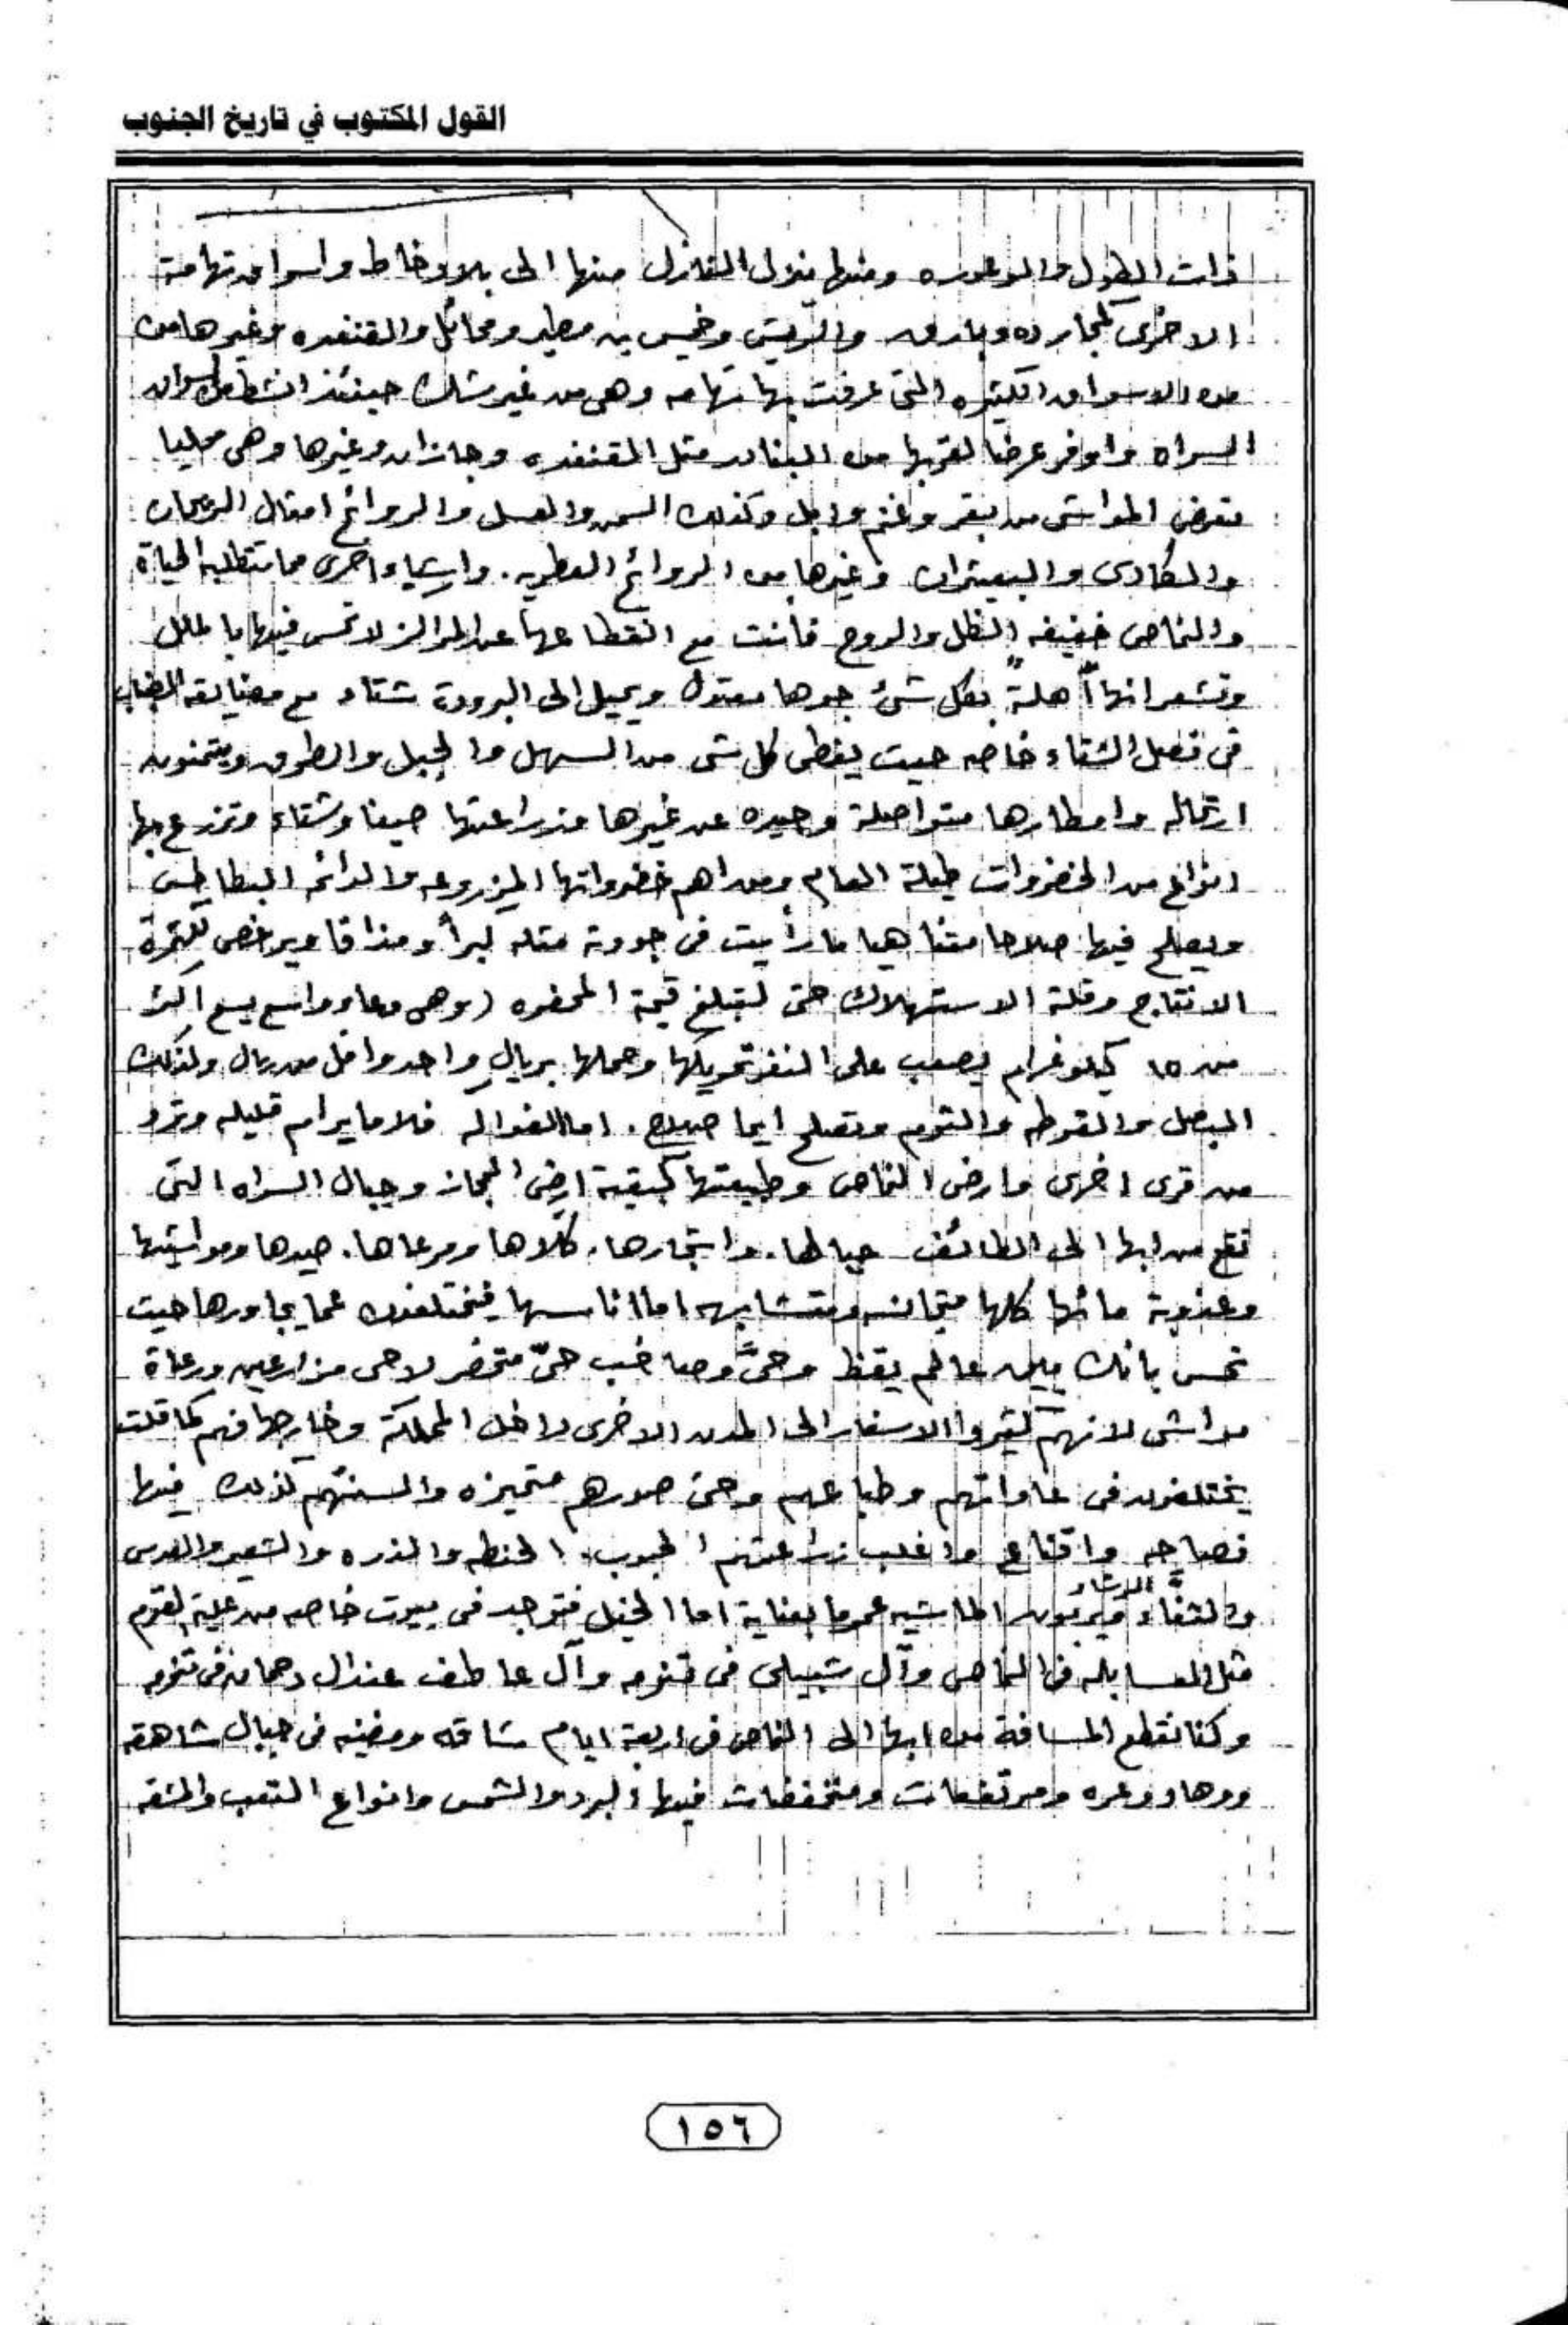 القول المكتوب في تاريخ الجنوب
ذات الطول والوعوره ومنها ينزل النازل منها الى بلاد خاط واسواق تهامة
الاخرى كمجارده وبارق والريش وخميس بن مطير ومحائل والقنفده وغيرها من
من الاسواق الكثيره التى عرفت بها تهامه وهى من غير شك حينئذ انشط من اسواق
السراه واوفر عرضا لقربها من البنادر مثل القنفده وجازان وغيرها وهى محليا
تعرض المواشى من بقر وغنم وابل وكذلك السمن والعسل والروائح امثال الريحان
والكادى والبعيثران وغيرها من الروائح العطريه. واشياء اخرى مما تتطلبه الحياة
والنماص خفيفه الظل والروح فأنت مع انقطاعها عن المراكز لا تحس فيها بالملل
وتشعر انها آهلةً بكل شئ جوها معتدل ويميل الى البرودة شتاء مع مضايقه الضباب
فى فصل الشتاء خاصه حيث يغطى كل شى من السهل والجبل والطرق ويتمنون
ارتحاله وامطارها متواصلة وحيده عن غيرها مزراعتها صيفا وشتاء وتزرع بها
انواع من الخضروات طيلة العام ومن اهم خضرواتها المزروعه والدائمه البطاطس
ويصلح فيها صلاحا متناهيا ما رأيت فى جودته مثله كبرأ ومذاقا ويرخص لكثرة
الانتاج وقلة الاستهلاك حتى لتبلغ قيمة المحفره (وهى وعاء واسع يسع اكثر
من ١٥ كيلو غرام يصعب على النفر تحريكها وحملها بريال واحد واقل من ريال ولذلك
البصل والقوطه والثوم وتصلح ايما صلاح. اما الفواكه فلا ما يرام قليله وترد
من قرى اخرى وارض النماص وطبيعتها كبقية ارض الحجاز وجبال السراه التى
تقع من ابها الى الطائف جبالها. واشجارها. كلاها ومرعاها. صيدها ومواشيها
وعذوبة مائها كلها متجانسه ومتشابهه اما اناسها فيختلفون عما يجاورها حيث
تحس بانك بين عالم يقظ وحىًّ وصاخب حىّ متحضر لاحى مزارعين ورعاة
مواشى لانهم كثيروا الاسفار الى المدن الاخرى داخل المملكة وخارجها فهم كما قلت
يختلفون فى عاداتهم وطباعهم وحتى صورهم متميزه والسنتهم كذلك فيها
فصاحه واقناع واغلب زراعتهم الحبوب. الحنطه والذره والشعير والعدس
والثفاء الرشاد ويربون الماشيه عموما بعناية اما الخيل فتوجد فى بيوت خاصه من علية القوم
مثل العسابله فى النماص وآل شبيلى فى تنومه وآل عاطف عندال دحمان فى تنومه
وكنا نقطع المسافة من ابها الى النماص فى اربعة ايام شاقه ومضنيه فى جبال شاهقه
ووهاد وعره ومرتفعات ومنخفضات فيها البرد والشمس وانواع التعب والمشقه
١٥٦